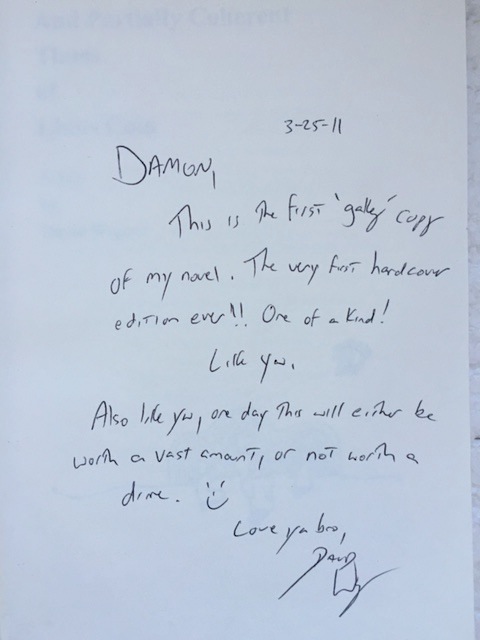 And Partially Coherent
3-25-11
DAMON,
This is the first 'galley' copy
of my novel. The very first hardcover
edition ever!! One of a kind!
Like you.
Also like you, one day this will either be
worth a vast amount, or not worth a
dime.
Love ya bro,
DAVID